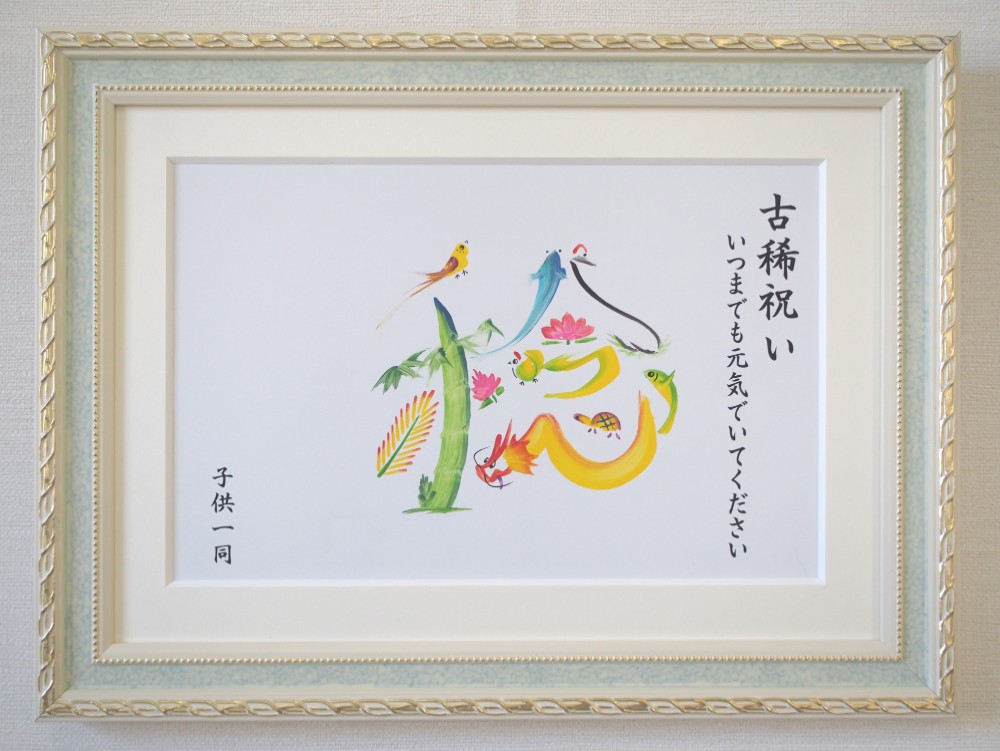 古稀祝い
いつまでも元気でいてください
稔
子供一同